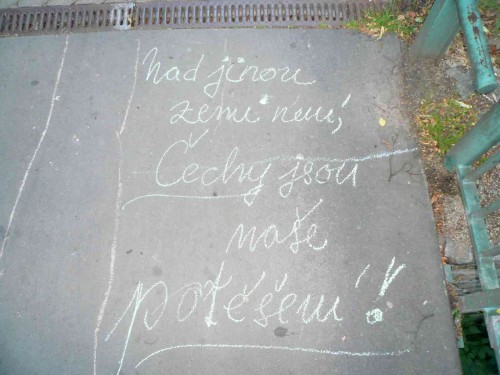 nad jinou
zemi není,
Čechy jsou
naše
potěšení!